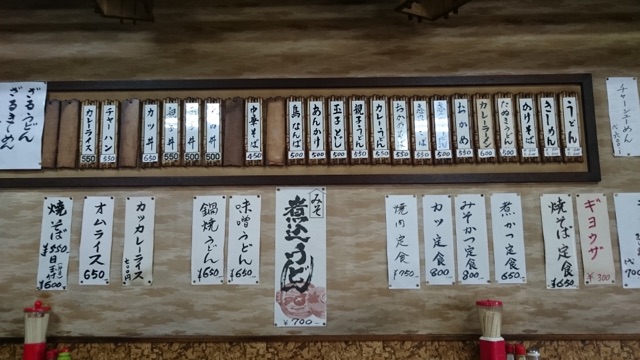 うどん
きしめん
550
のけそば
550
たぬきうどん
550
カレーラーメン
600
おかめ
500
500
500
カレーうどん
550
親子うどん
500
玉子とじ
500
あんかけ
500
鳥なんば
500
中華そば
450
500
親子丼
500
カツ丼
650
チャーハン
550
カレーライス
550
ざるうどん
ざるきしめん
チャーシューメン
ギョウザ
¥300
焼そば定食
¥650
煮かつ定食
650
みそかつ定食
800
カツ定食
800
焼肉定食
¥750
みそ
煮込うどん
¥700
味噌うどん
¥650
鍋焼うどん
¥650
カツカレーライス
オムライス
650
焼そば
¥550
¥600